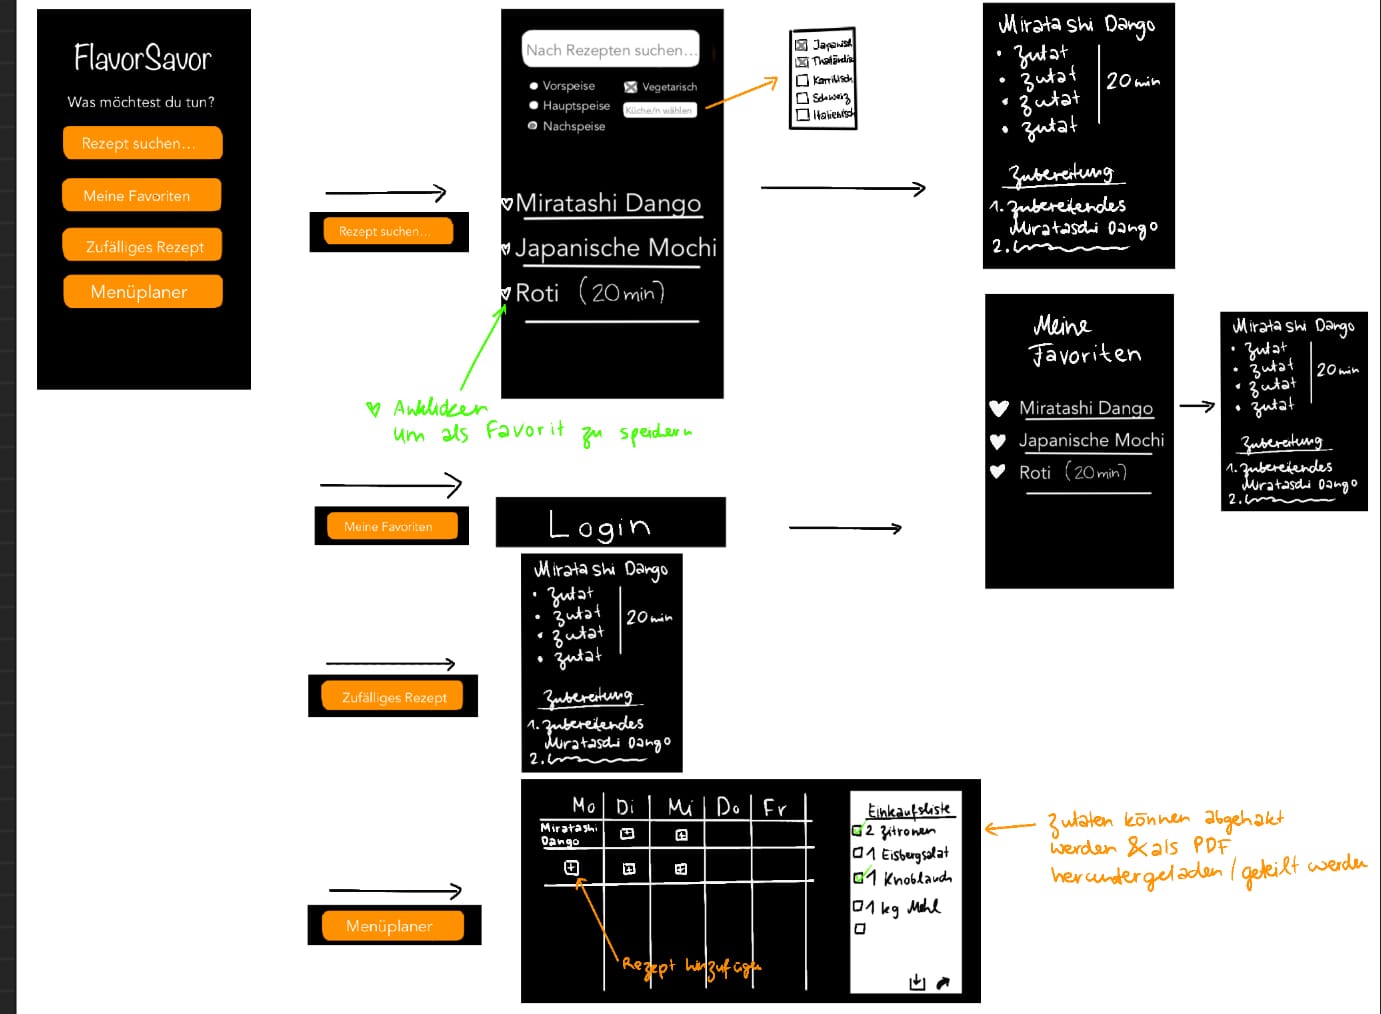 FlavorSavor
Was möchtest du tun?
Rezept suchen...
Meine Favoriten
Zufälliges Rezept
Menüplaner
Rezept suchen...
Nach Rezepten suchen...
Vorspeise
Hauptspeise
Nachspeise
Vegetarisch
Küche/n wählen
Japanisch
Thailändis
Karribisch
Schweiz
Italienisch
Miratashi Dango
Japanische Mochi
Roti (20 min)
Anklicken
um als Favorit zu speichern
Miratashi Dango
Zutat
Zutat
Zutat
Zutat
20 min
Zubereitung
1. Zubereitendes
Mirataschi Dango
2.
Meine Favoriten
Login
Meine
Favoriten
Miratashi Dango
Japanische Mochi
Roti (20 min)
Miratashi Dango
Zutat
Zutat
Zutat
Zutat
20 min
Zubereitung
1. Zubereitendes
Mirataschi Dango
2.
Zufälliges Rezept
Miratashi Dango
Zutat
Zutat
Zutat
Zutat
20 min
Zubereitung
1. Zubereitendes
Mirataschi Dango
2.
Menüplaner
Mo Di Mi Do Fr
Miratashi
Dango
Rezept hinzufügen
Einkaufsliste
2 Zitronen
1 Eisbergsalat
1 Knoblauch
1 kg Mehl
Zutaten können abgehakt
werden & als PDF
heruntergeladen / geteilt werden